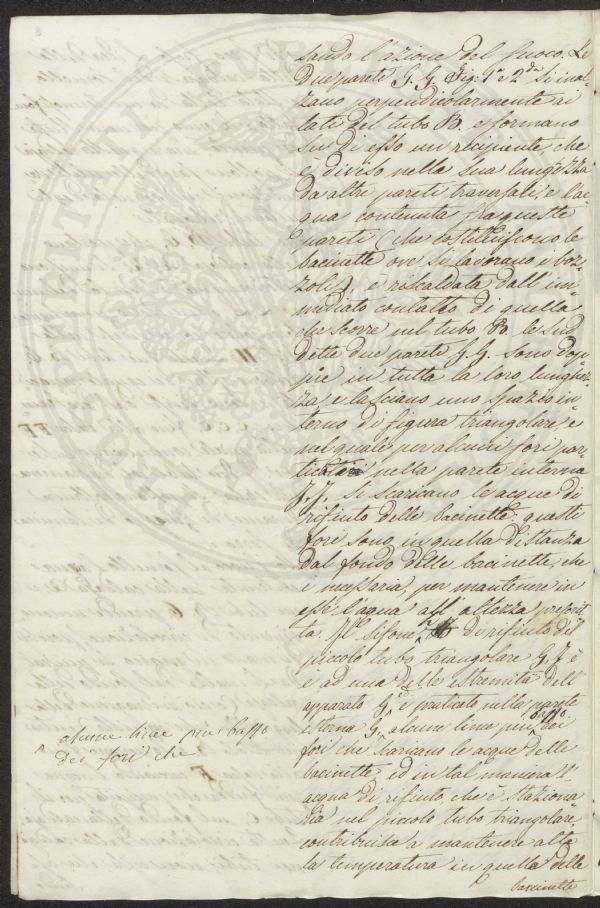 sando l'azione del fuoco. Le
due pareti G. G. Fig: 1ª e 2da s'inal-
zano perpendicolarmente ai
lati del tubo B. e formano
su di esso un recipiente che
è diviso nella sua lunghezza
da altre pareti traversali, e l'ac-
qua contenuta fra queste
pareti (che costituiscono le
bacinette ove si lavorano i boz-
zoli), è riscaldata dall'im-
mediato contatto di quella
che scorre nel tubo B. le sud-
dette due pareti G. G. sono dop-
pie in tutta la loro lunghez-
za e lasciano uno spazio in-
terno di figura triangolare, e
nel quale per alcuni fori par-
nella parete interna
J. J. si scaricano le acque di
rifiuto delle bacinette: questi
fori sono in quella distanza
dal fondo delle bacinette, che
è necessaria, per mantenere in
esse l'acqua all'altezza prescrit-
ta. Il sifone di rifiuto del
piccolo tubo triangolare G. J. è
e ad una delle estremità dell'
apparato G. è praticato nella parete
esterna G. alcune linee più basso dei
fori che scaricano le acque delle
bacinette, ed in tal maniera l'
acqua di rifiuto, che è staziona-
ria nel piccolo tubo triangolare,
contribuisce a mantenere alta
la temperatura in quella delle
bacinette
alcune linee più basso
dei fori che